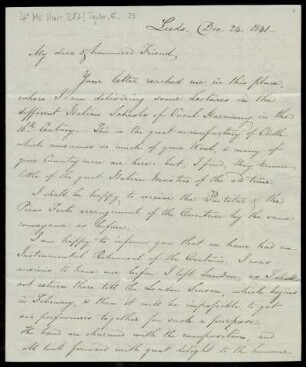 Leeds. Dec. 24. 1841.
My dear & honoured Friend,
Your letter reached me in this place,
where I am delivering some Lectures on the
different Italian Schools of Vocal Harmony in the
16th Century. This is the great manufactory of Cloth
which consumes so much of your Wool, & many of
your Countrymen are here: but, I find, they know
little of the great Italian Masters of the old time.
I shall be happy to receive the Partitur & the
Piano Forte arrangement of the Overture by the same
conveyance as before.
I am happy to inform you that we have had an
Instrumental Rehearsal of the Oratorio. I was
anxious to have one before I left London, as I shall
not return there till the London Season, which begins
in February, & then it will be impossible to get
our performers together for such a purpose.
The band are charmed with the composition, and
all look forward with great delight to the